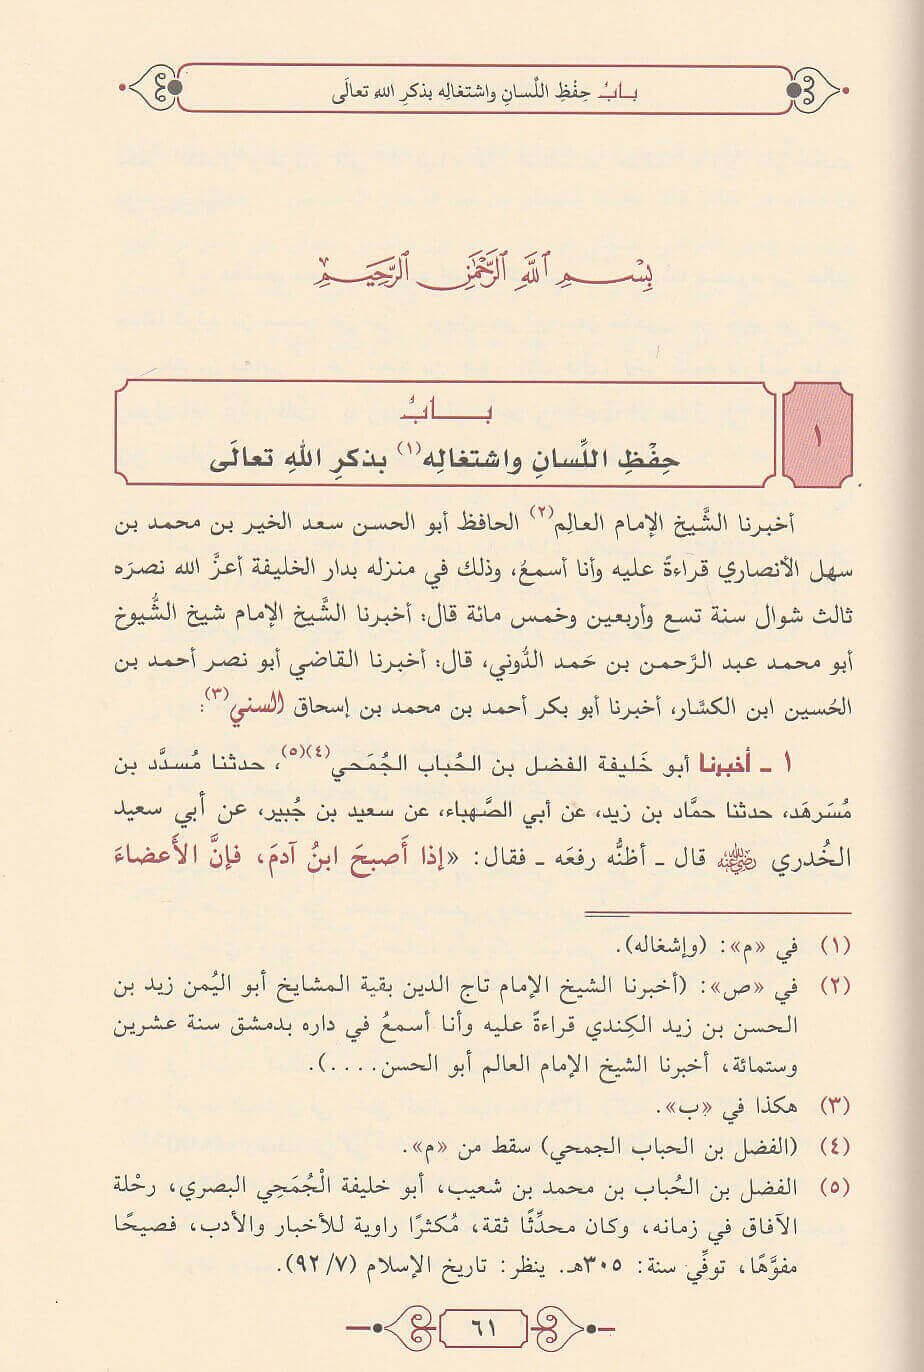 بـابُ حِفْظِ اللِّسانِ واشتغالِه بذكرِ اللهِ تعالَى
بِسْمِ اللَّهِ الرَّحْمَٰنِ الرَّحِيمِ
١
بـــابُ
حِفْظِ اللِّسانِ واشتغالِه(١) بذكرِ اللهِ تعالَى
أخبرنا الشَّيخ الإمام العالِم(٢) الحافظ أبو الحسن سعد الخير بن محمد بن
سهل الأنصاري قراءةً عليه وأنا أسمعُ، وذلك في منزله بدار الخليفة أعزَّ الله نصرَه
ثالث شوال سنة تسع وأربعين وخمس مائة قال: أخبرنا الشَّيخ الإمام شيخ الشُّيوخ
أبو محمد عبد الرَّحمن بن حَمد الدُّوني، قال: أخبرنا القاضي أبو نصر أحمد بن
الحُسين ابن الكسَّار، أخبرنا أبو بكر أحمد بن محمد بن إسحاق السني(٣):
١ ـ أخبرنا أبو خَليفة الفضل بن الحُباب الجُمَحي(٤)(٥)، حدثنا مُسدَّد بن
مُسَرهَد، حدثنا حمَّاد بن زيد، عن أبي الصَّهباء، عن سعيد بن جُبير، عن أبي سعيد
الخُدري رضي الله عنه قال ـ أظنُّه رفعَه ـ فقال: «إذا أَصبحَ ابنُ آدمَ، فإنَّ الأَعضاءَ
(١) في «م»: (وإشغاله).
(٢) في «ص»: (أخبرنا الشيخ الإمام تاج الدين بقية المشايخ أبو اليُمن زيد بن
الحسن بن زيد الكِندي قراءةً عليه وأنا أسمعُ في داره بدمشق سنة عشرين
وستمائة، أخبرنا الشيخ الإمام العالم أبو الحسن....).
(٣) هكذا في «ب».
(٤) (الفضل بن الحباب الجمحي) سقط من «م».
(٥) الفضل بن الحُباب بن محمد بن شعيب، أبو خليفة الْجُمَحِي البصري، رحْلة
الآفاق في زمانه، وكان محدِّثًا ثقة، مُكثرًا راوية للأخبار والأدب، فصيحًا
مفوَّهًا، توفِّي سنة: ٣٠٥هـ. ينظر: تاريخ الإسلام (٩٢/٧).
٦١